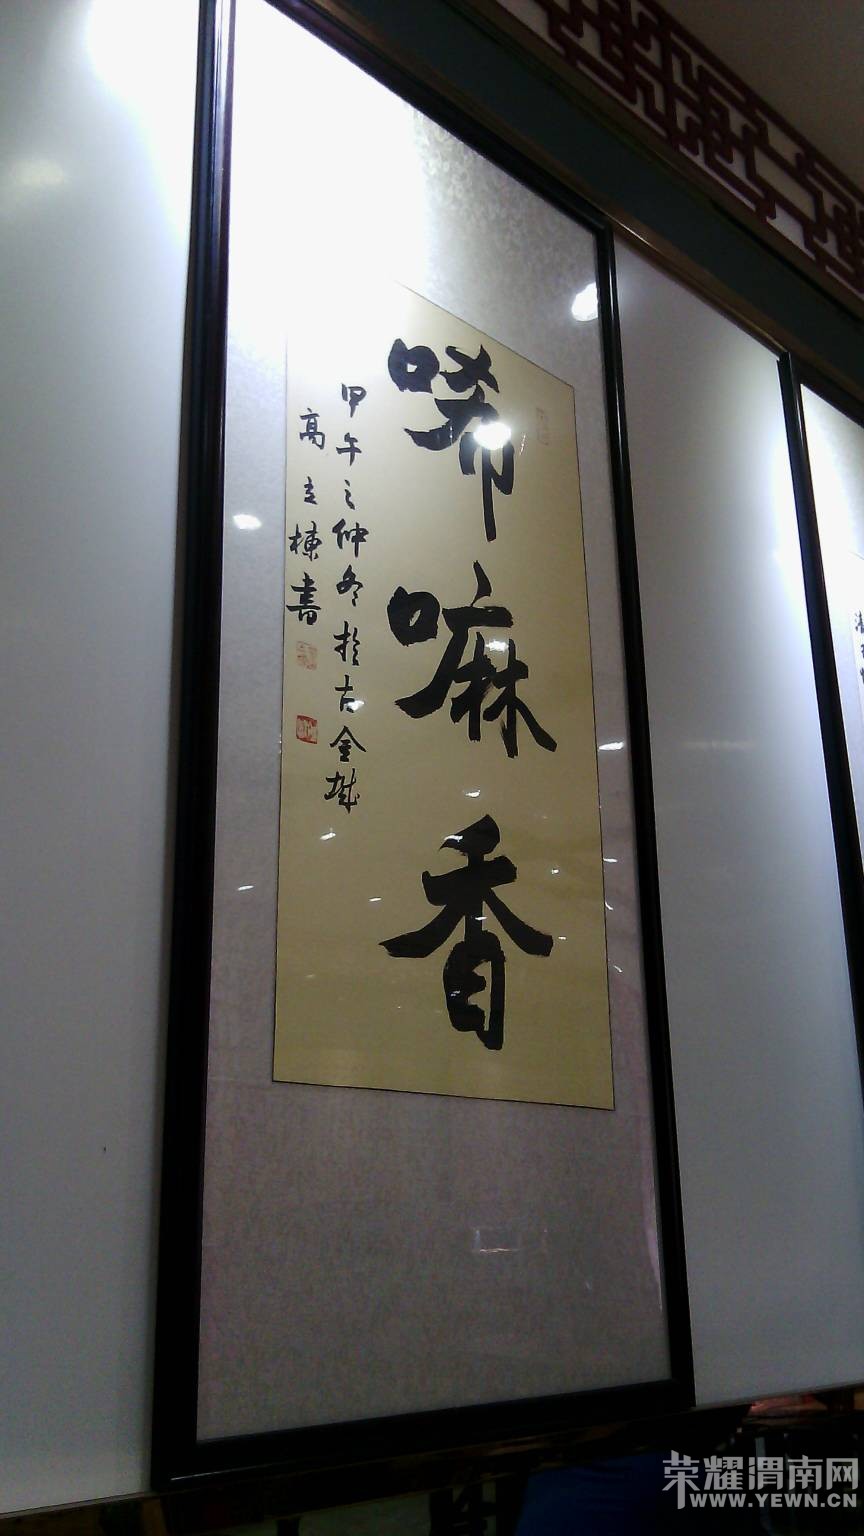 唏嘛香
甲午之仲冬於古金城
高立棟書
荣耀渭南网
WWW.YEWN.CN